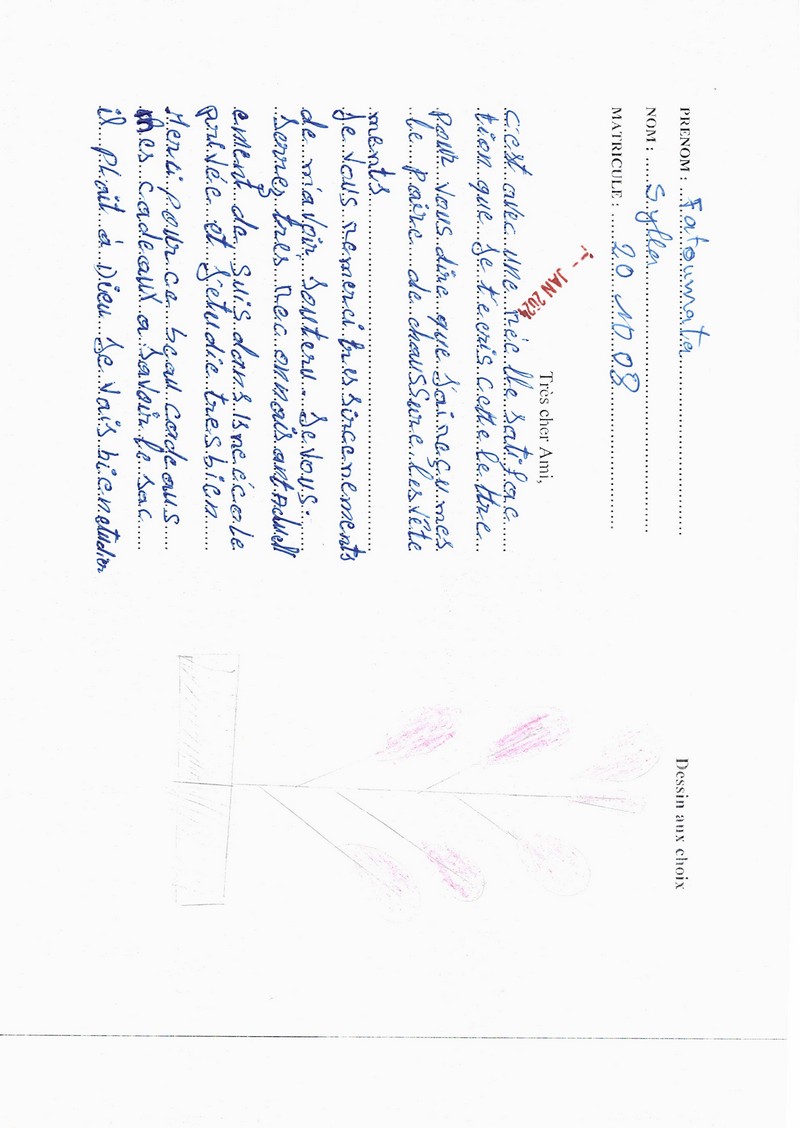 PRENOM : Fatoumata
NOM : Sylla
MATRICULE : 20 10 08
- - JAN 2024
Très cher Ami,
c'est avec une réelle satifac
tion que Je t'ecris cette lettre
pour vous dire que J'ai reçu mes
le paire de chaussure les vête
ments
Je vous remerci tres sincerements
de m'avoir soutenu. Je vous.
serrez tres reconnaisant Actuell
ement de suis dans une école
privée et J'etudie tres bien
Merci pour ce beau cadeaus
mes cadeaux a savoir le sac
il plait à Dieu Je vais bien etudier
Dessin aux choix